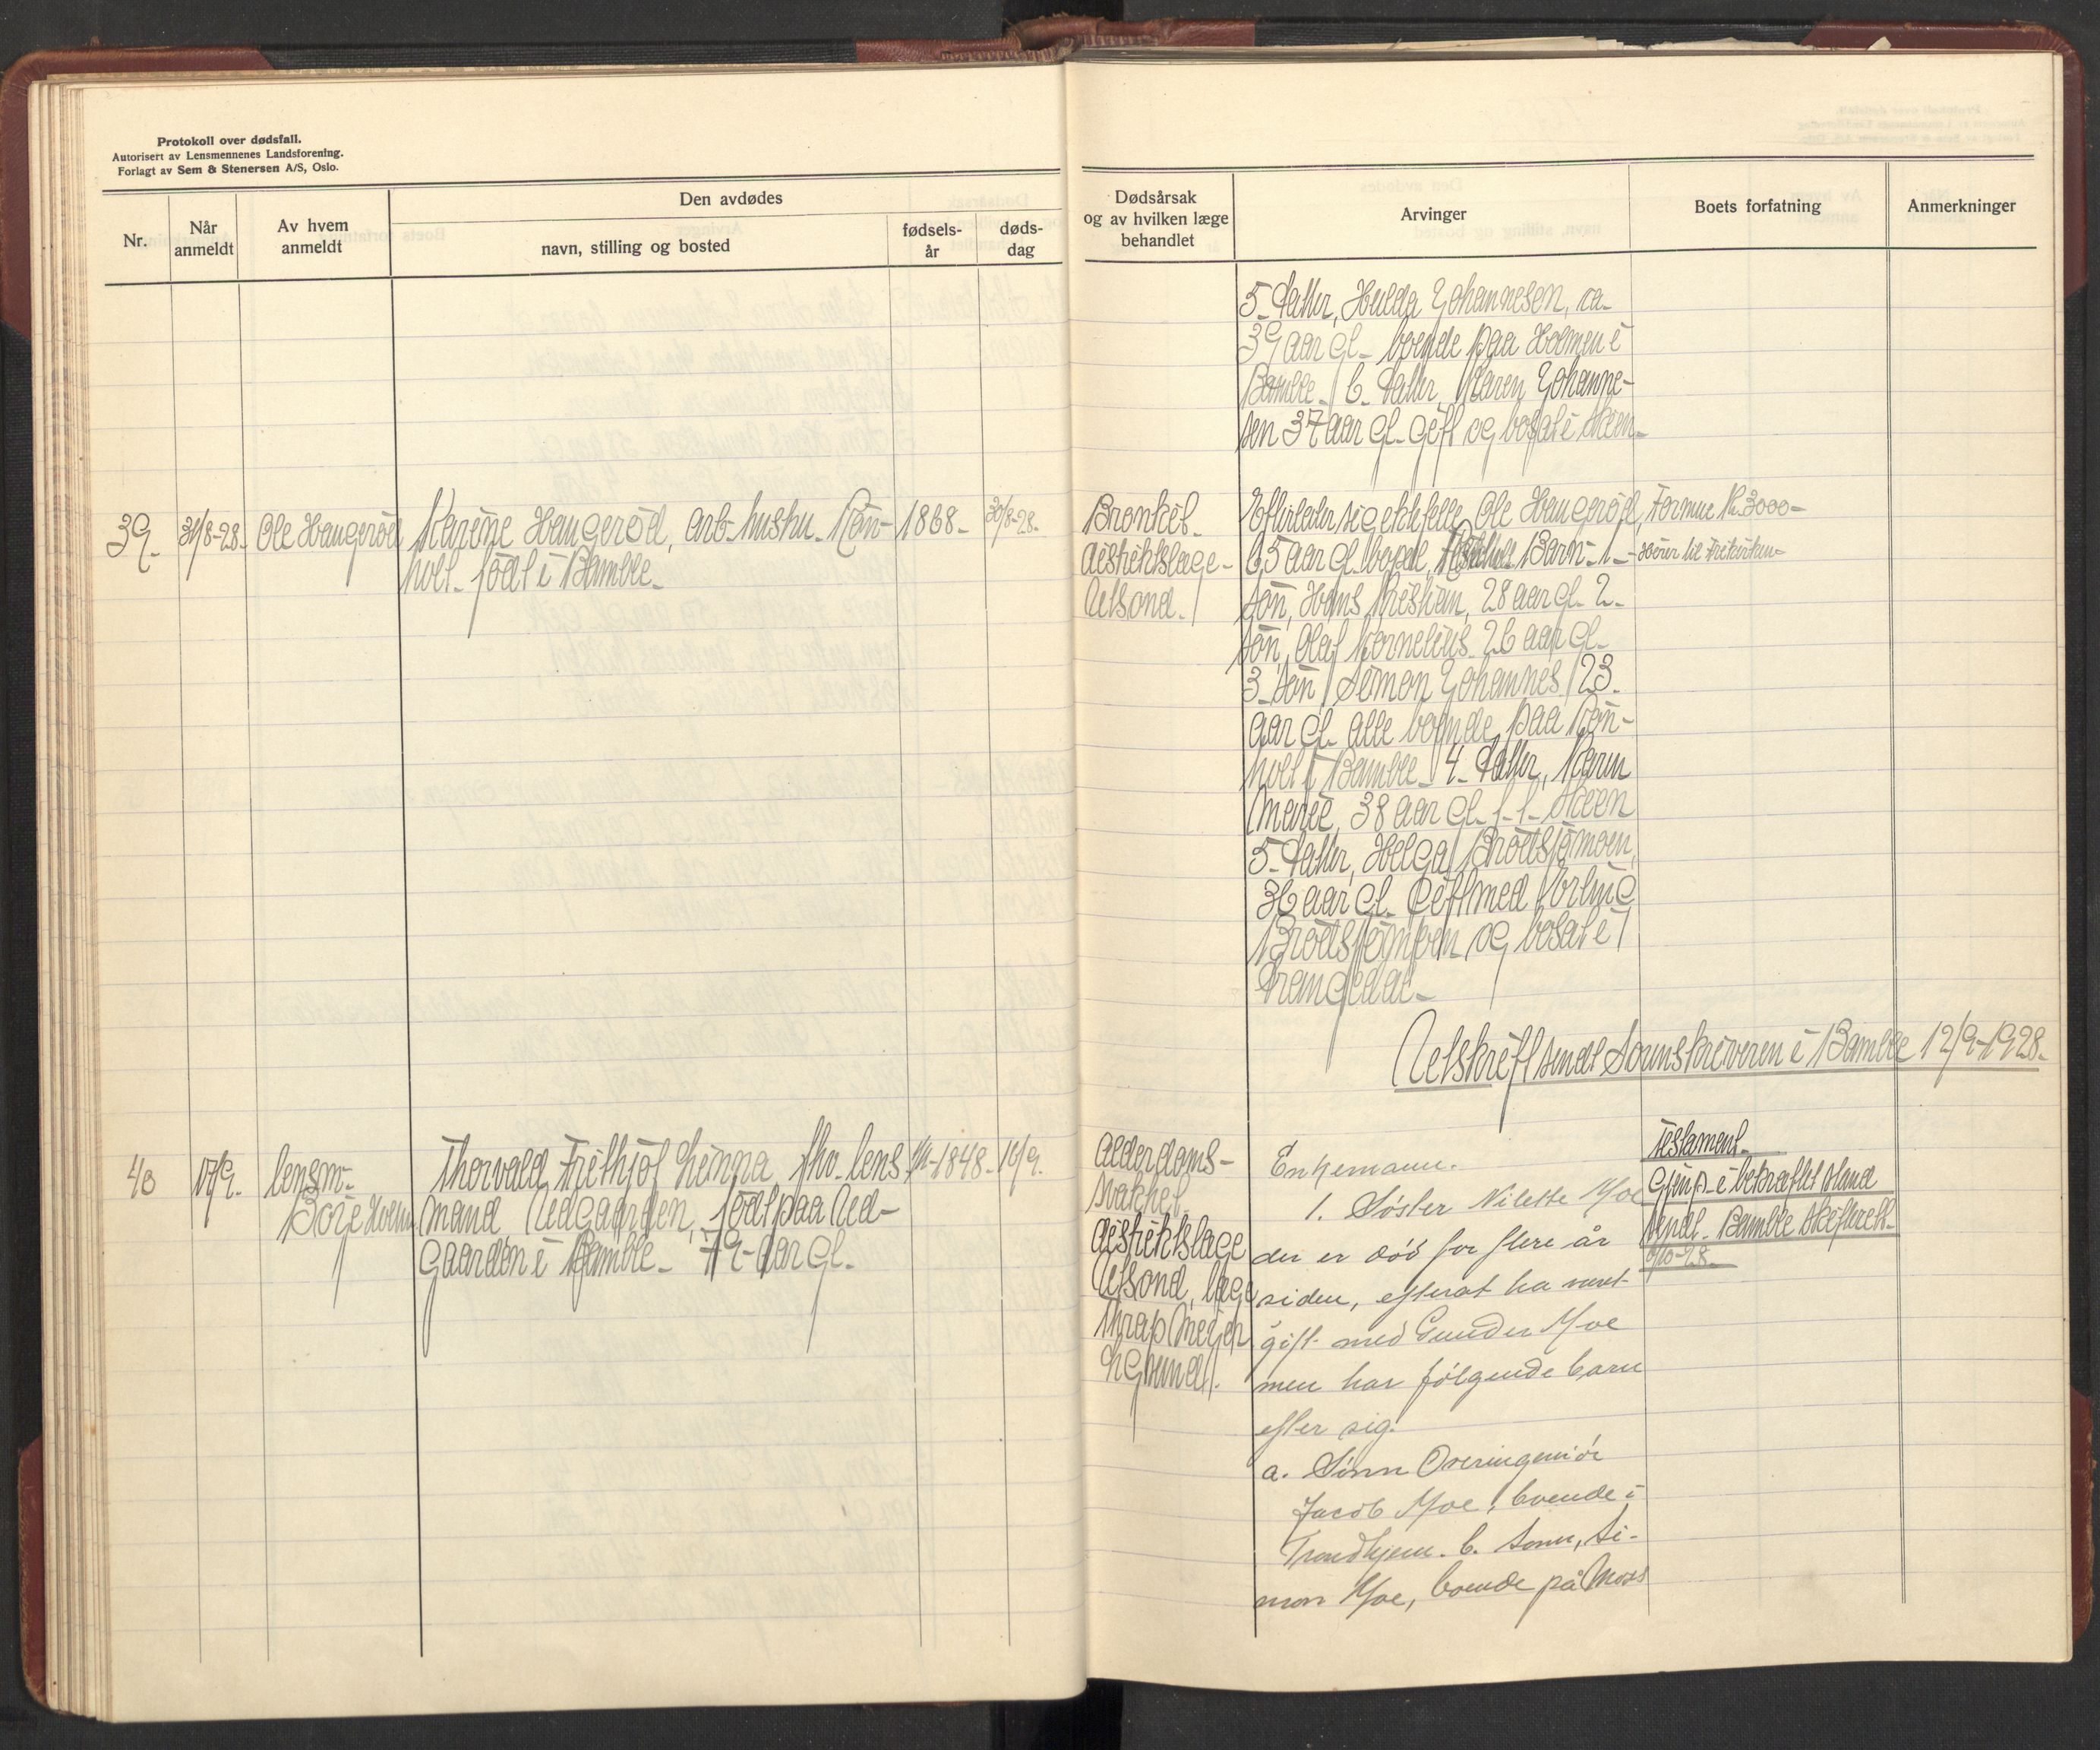 Protokoll over dødsfall.
Autorisert av Lensmennenes Landsforening.
Forlagt av Sem & Stenersen A/S, Oslo.
Nr.
Når anmeldt
Av hvem anmeldt
Den avdødes
navn, stilling og bosted
fødsels-år
døds-dag
Dødsårsak og av hvilken læge behandlet
Arvinger
Boets forfatning
Anmerkninger
5. datter, Hulda Johannesen, ca.
39 aar gl. boende paa Holmen i
Bamble. 6. datter, Karen Johanne-
sen 37 aar gl. gift og bosat i Skien.
39.
31/8-28.
Ole Haugerød
Karine Haugerød, arb. hustru. Røn-
holt. født i Bamble.
1868.
30/8-28.
Bronkit.
distriktslæge
Ulsond.
Efterlader sig ektefelle Ole Haugerød
65 aar gl. Barn. 1.
søn, Hans Kristian, 28 aar gl. 2.
søn, Olaf Kornelius 26 aar gl.
3. søn Simon Johannes 23
aar gl. alle boende paa Røn-
holt i Bamble. 4. datter, Karen
Marie, 38 aar gl. Skien
5. datter, Helga Brødsjømoen,
36 aar gl. gift med
Brødsjømoen og bosat i
Drangedal.
Formue Kr. 3000-
Utskrift sendt Sorenskriveren i Bamble 12/9-1928.
40
17/9.
lensm.
Børe Holm
Thorvald Frithjof Linna, fhv. lens-
mand Nedgaarden, født paa Ned-
gaarden i Bamble. 79 aar gl.
1848.
16/9.
Alderdoms-
svakhet.
distriktslæge
Ulsond, læge
Thrap Meyer
Enkemann.
1. Søster Nilette Moe
der er død for flere år
siden, efterat ha været
gift med Gunder Moe
men har følgende barn
efter sig.
a. Sønn Overingeniør
Jacob Moe, boende i
Trondhjem. b. Sønn, Si-
mon Moe, boende på Moss
Testament.
Gjenp. i bekræftet stand
sendt. Bamble skifterett.
6/10-28.